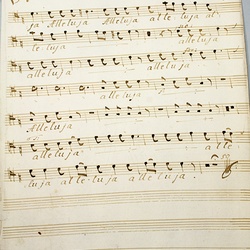 ja Alleluja Alleluja alleluja al
leluja alleluja
alleluja alleluja
alleluja
Alleluja
alleluja alle
luja alleluja alleluja.